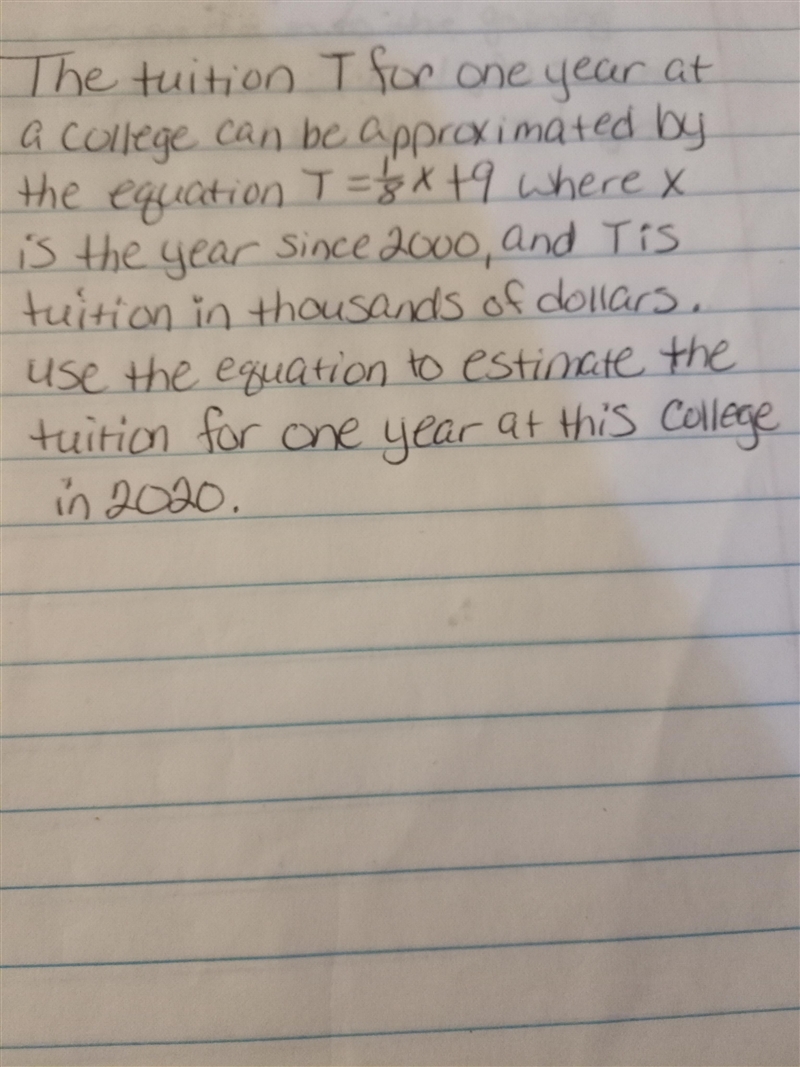 The tuition T for one year at
a college can be approximated by
the equation T = 1/8 x + 9 where x
is the year since 2000, and T is
tuition in thousands of dollars.
use the equation to estimate the
tuition for one year at this college
in 2020.